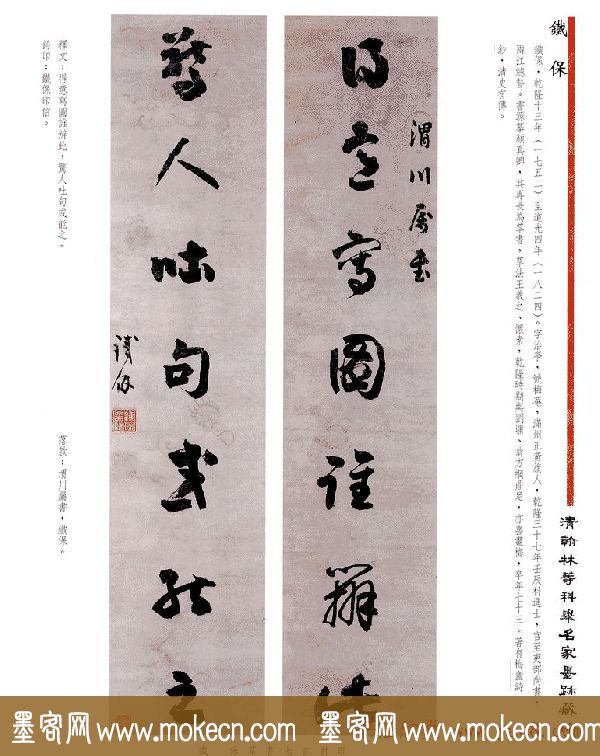 鐵保
鐵保，乾隆十三年（一七五二）至道光四年（一八二四）。字冶亭，號梅菴，滿州正黃旗人，乾隆三十七年壬辰科進士，官至吏部尚書，
兩江總督。書探摹顏真卿，其專長為草書，草法王羲之、懷素，乾隆時期與劉墉、翁方綱鼎足，亦善畫梅，辛年七十三。著有梅盦詩
鈔，清史有傳。
清翰林等科舉名家墨跡
渭川屬書
得意寫圖詮辨此
驚人吐句或能之
鐵保
釋文：得意寫圖詮辨此，驚人吐句或能之。
鈐印：鐵保印信。
落款：渭川屬書，鐵保。
墨客网 www.mokecn.com 墨客网 www.mokecn.com